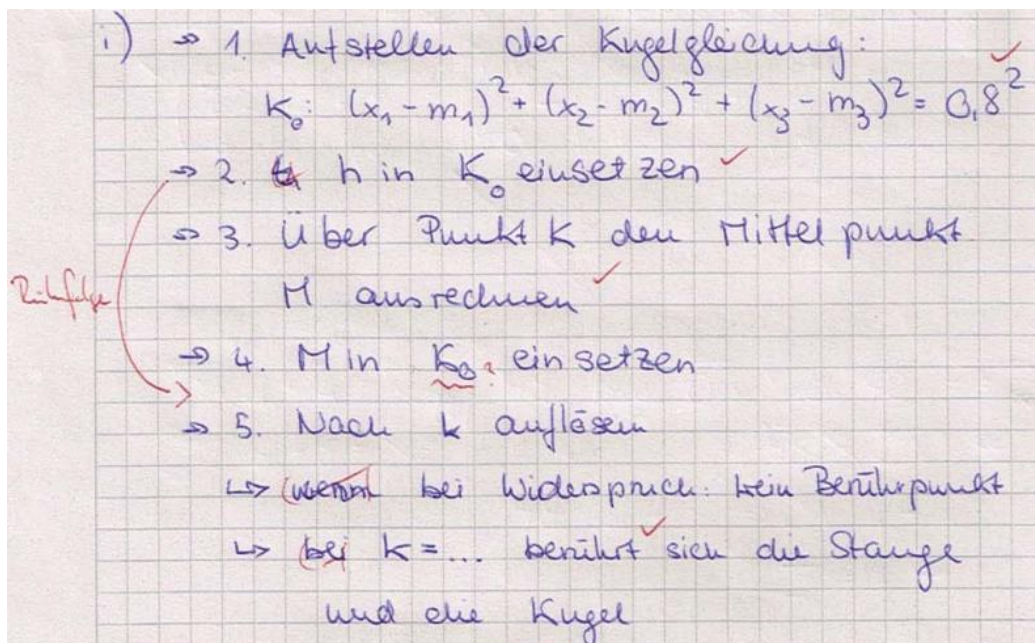 i) → 1. Aufstellen der Kugelgleichung:
K₀: (x₁ - m₁)² + (x₂ - m₂)² + (x₃ - m₃)² = 0,8² ✓
→ 2. h in K₀ einsetzen ✓
→ 3. Über Punkt K den Mittelpunkt
Reihenfolge
M ausrechnen ✓
→ 4. M in K₀? einsetzen
→ 5. Nach k auflösen
↳ bei Widerspruch: kein Berührpunkt
↳ (bei) k = ... berührt ✓ sich die Stange
und die Kugel